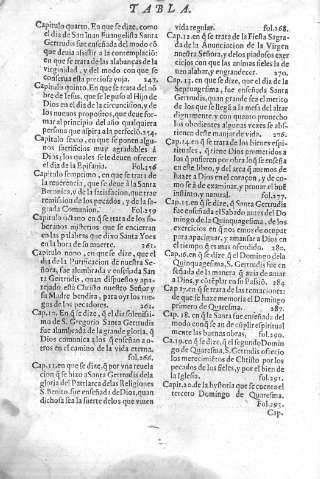 TABLA.
Capitulo quarto. En que se dize, como
el dia de San Iuan Euangelista Santa
Gertrudis fue enseñada del modo cõ
que deuia assistir a la contemplacion
en que se trata de las alabanças de la
virginidad, y del modo con que se
consigue esta preciosa joya. 247.
Capitulo quinto. En que se trata del nõ
bre de Iesus, que se puso al Hijo de
Dios en el dia de la circuncision, y de
los nueuos propositos, que deue for-
mar al principio del año qualquiera
persona que aspira a la perfeciõ. 254.
Capitulo sexto, en que se ponen algu-
nos sacrificios muy agradables à
Dios, los quales se le deuen ofrecer
el dia de la Epifania. Fol.256
Capitulo septimo, en que se trata de
la reuerencia, que se deue à la Santa
Beronica, y de la satisfacion, que trae
remission de los pecados, y de la sa-
grada Comunion. Fol.259
Capitulo octauo en que se trata de los so-
beranos misterios que se encierran
en las palabras que dixo Santa Ynes
en la hora de su muerte. 261.
Capitulo nono, en que se dize, que el
dia de la Purificacion de nuestra Se-
ñora, fue alumbrada y enseñada San
ta Gertrudis, quan dispuesto y apa-
rejado està Christo nuestro Señor y
su Madre bendita, para oyr los rue-
gos de los pecadores. 262.
Cap.10. En q̃ se dize, q̃ el dia solenissi-
mo de S. Gregorio Santa Gertrudis
fue alumbrada de la grande gloria, q̃
Dios comunica a los q̃ enseñan a o-
tros en el camino de la vida eterna.
fol.266.
Cap.11. en que se dize, q̃ por vna reuela
cion q̃ se hizo a Santa Gertrudis de la
gloria del Patriarca de las Religiones
S. Benito, fue enseñada de Dios, quan
dichosa sea la suerte de los que viuen
vida regular. fol.268.
Cap.12. en q̃ se trata de la Fiesta Sagra-
da de la Anunciacion de la Virgen
nuestra Señora, y de los piadosos exer
cicios con que las animas fieles la de
uen alabar, y engrandecer. 270.
Cap.13. en que se dize, que el dia de la
Septuagesima, fue enseñada Santa
Gertrudis, quan grande sea el merito
de los que se llegã a la mesa del altar
dignamente y con quanto prouecho
los obedientes algunas vezes se absti-
enen deste manjar de vida. 276.
Cap.14. en q̃ se trata de los bienes espi-
rituales, q̃ tiene Dios prometidos a
los q̃ pusieren por obra loq̃ se enseña
en este libro, y del arca q̃ auemos de
hazer a Dios en el coraçon, y de co-
mo se à de examinar, y prouar el buẽ
instinto, y natural. fol.277.
Cap.15. en q̃ se dize, q̃ Santa Gertrudis
fue enseñada el Sabado antes del Do-
mingo de la Quinquagesima, de los
exercicios en q̃ nos emos de ocupar
para apaziguar, y amansar a Dios en
el tiempo q̃ es mas ofendido. 280.
Cap.16. en q̃ se dize, q̃ el Domingo de la
Quinquagesima, S. Gertrudis fue en
señada de la manera q̃ auia de amar
a Dios, y cõtẽplar en su Passiõ. 284.
Cap.17. en q̃ se trata de las tentaciones
de que se haze memoria el Domingo
primero de Quaresma. 287.
Cap.18. en q̃ la Santa fue enseñada del
modo conq̃ se an de cũplir espiritual
mente las buenas obras. fol.290.
Ca.19. en q̃ se dize, q̃ el segundo Domin
go de Quaresma, S. Gertrudis ofrecio
los merecimiẽtos de Christo por los
pecados de los fieles, y por el bien de
la Iglesia. fol.291.
Capit.20. de la hysteria que se cuenta el
tercero Domingo de Quaresma.
Fol.293.
Cap.